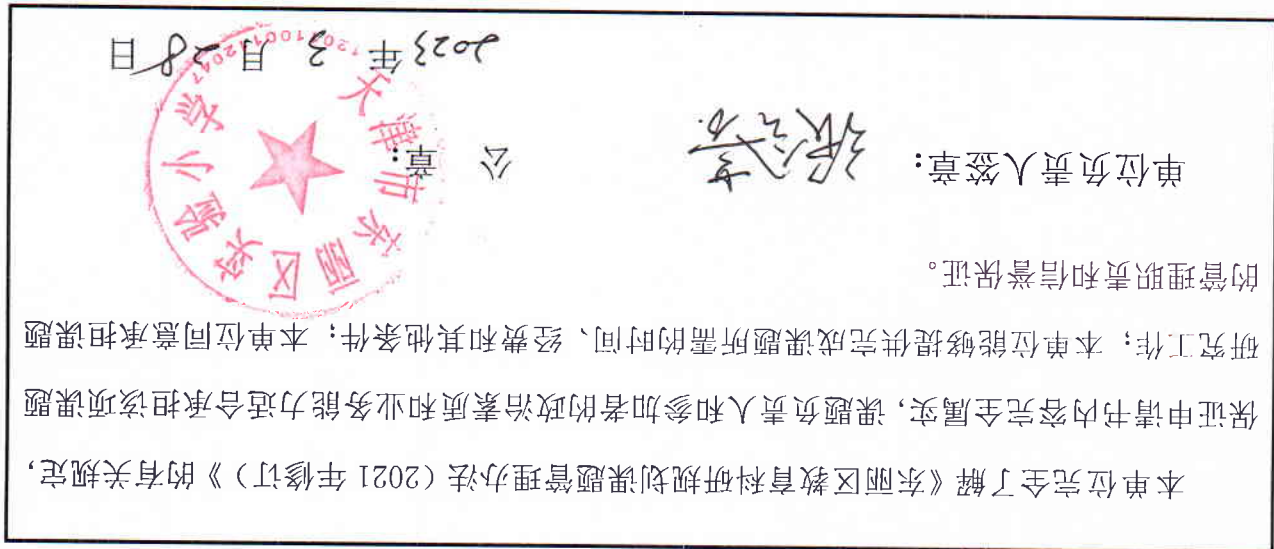 本单位完全了解《东丽区教育科研规划课题管理办法（2021 年修订）》的有关规定，
保证申请书内容完全属实，课题负责人和参加者的政治素质和业务能力适合承担该项课题
研究工作；本单位能够提供完成课题所需的时间、经费和其他条件；本单位同意承担课题
的管理职责和信誉保证。
单位负责人签章：
公 章：
天津市东丽区实验小学
2023 年 3 月 28 日